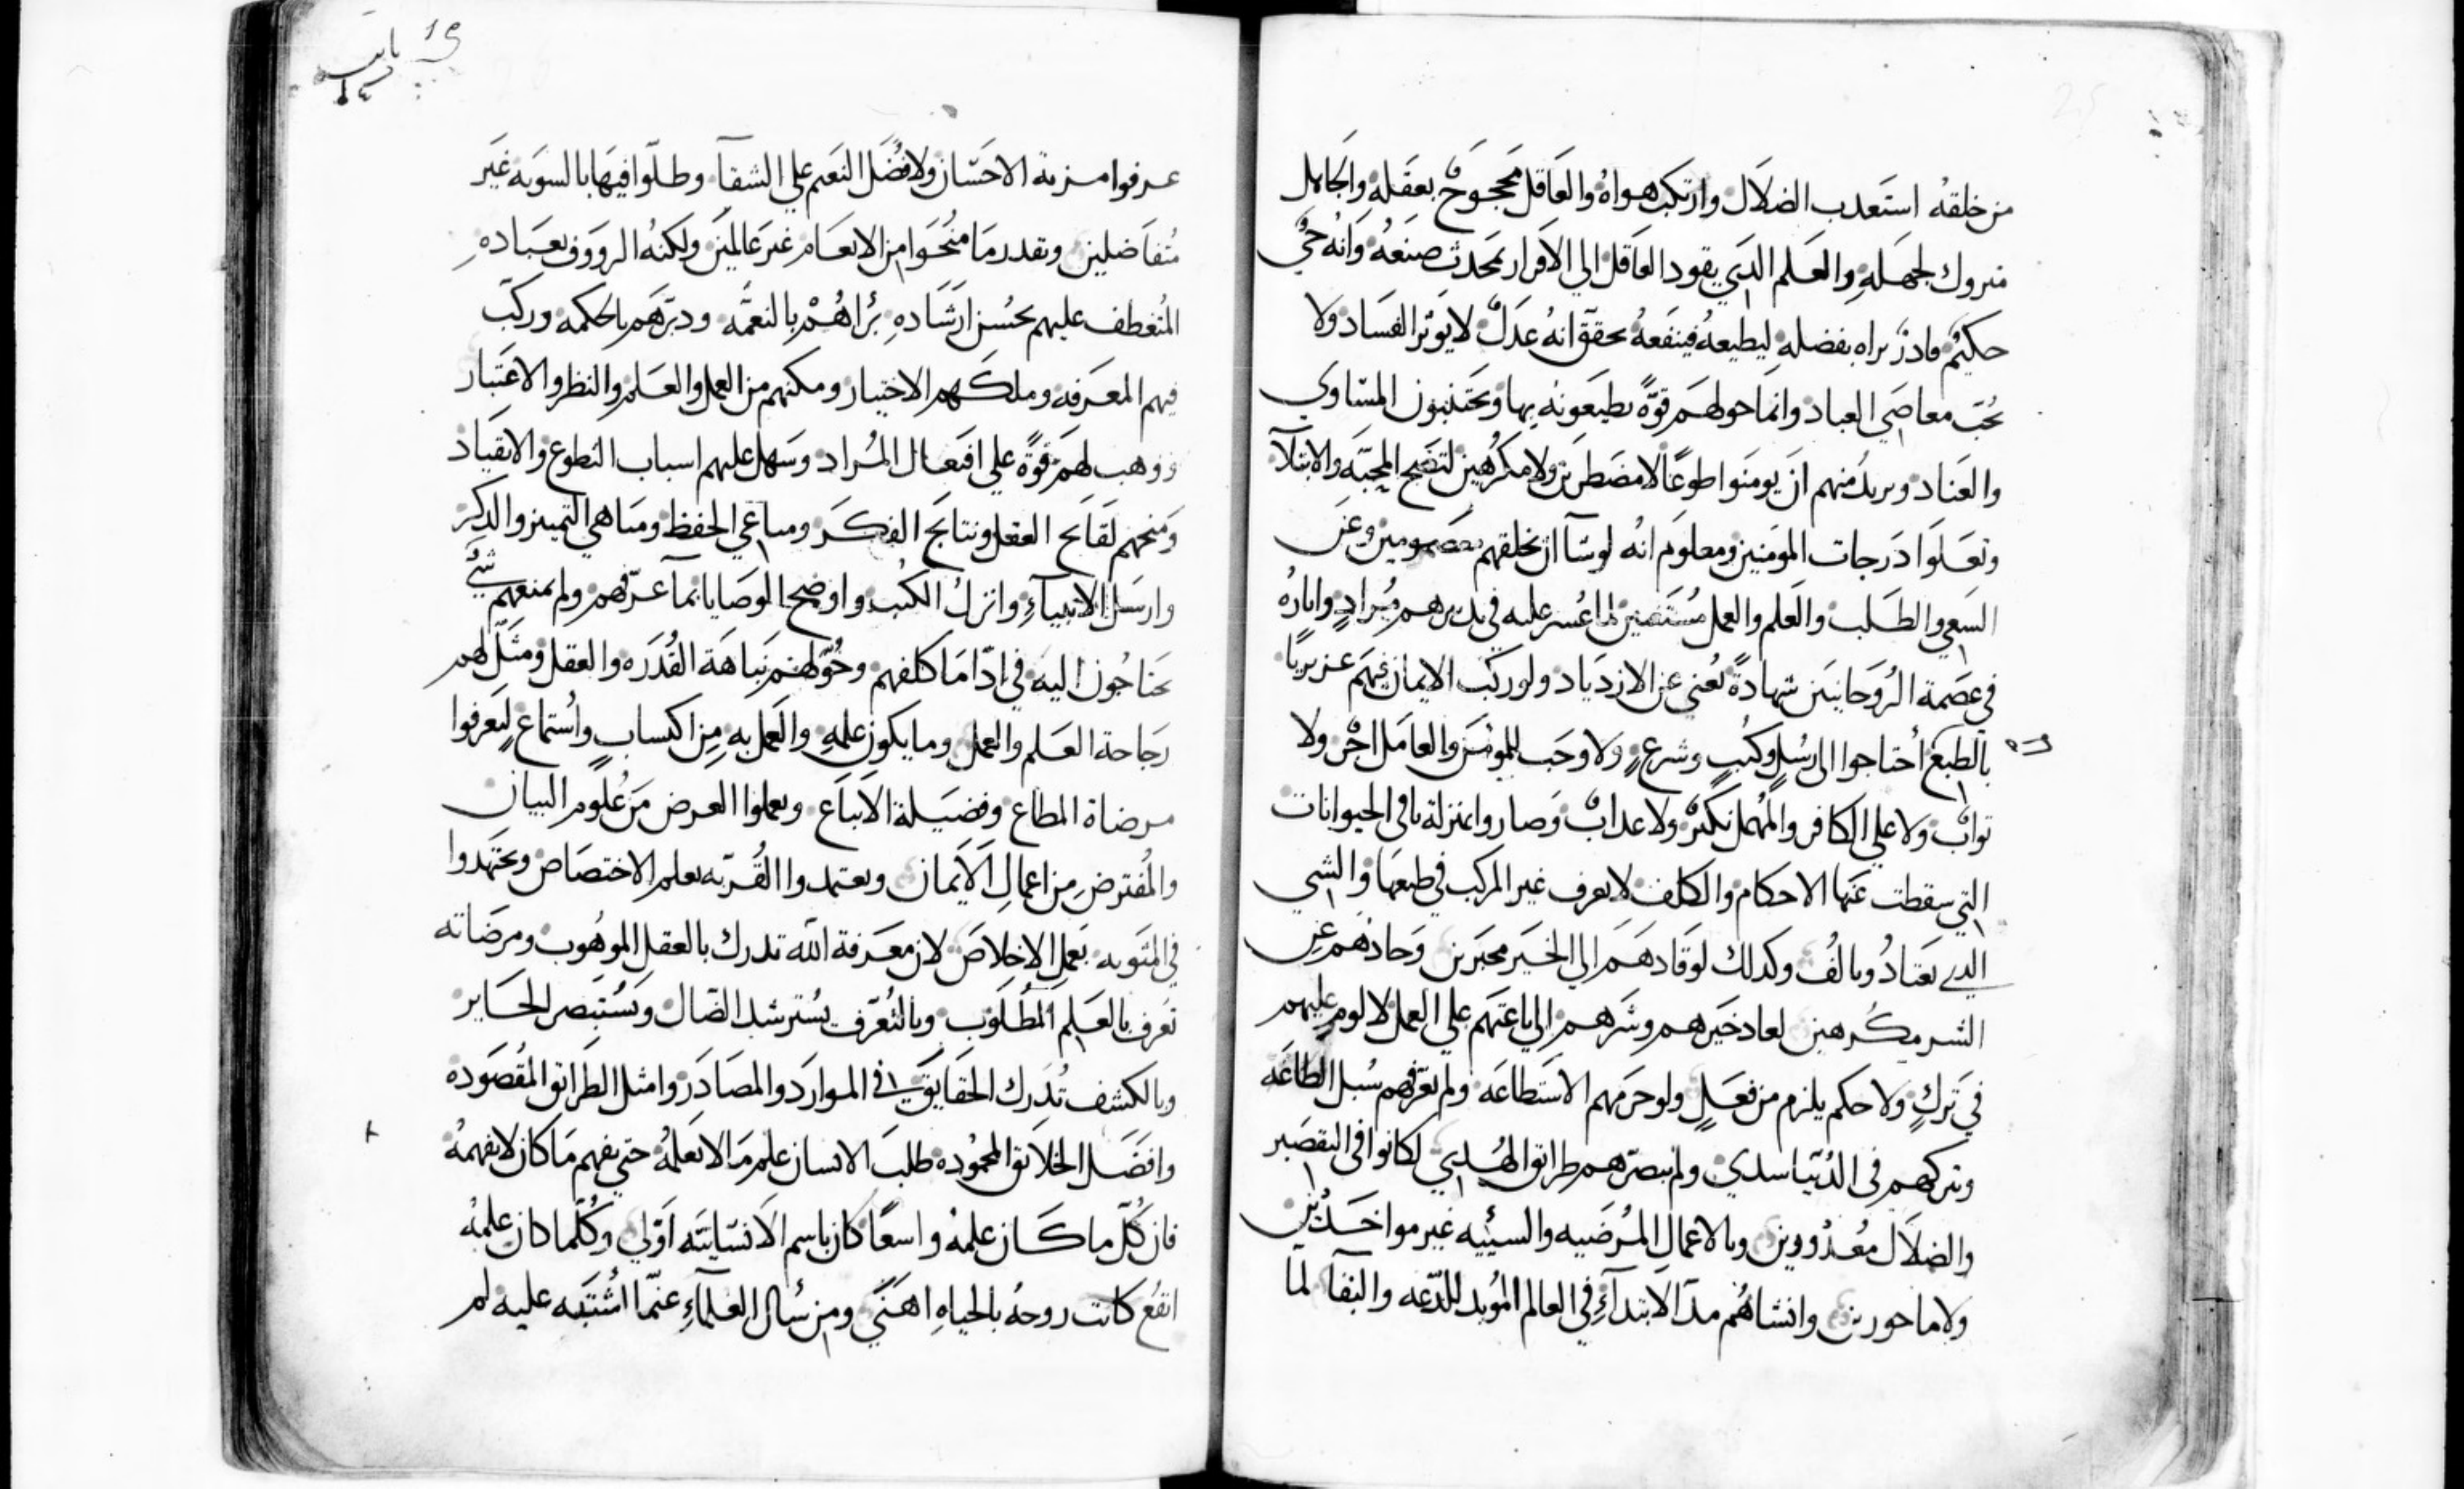 من خلقه استعدب الضلال وارتكب هواه والعاقل محجوج بعقله والجاهل
متروك لجهله والعلم الدي يقود العاقل الي الاقرار بمحدث صنعه وانه حي
حكيم قادر براه بفضله ليطيعه فينفعه تحقق انه عدل لا يوثر الفساد ولا
يحب معاصي العباد وانما حولهم قوة يطيعونه بها ويجتنبون المساوي
والعناد ويريد منهم ان يومنوا طوعا لا مضطرين ولا مكرهين لتضح المحبه والابتلآ
وتعلوا درجات المومنين ومعلوم انه لو شآ ان يخلقهم معصومين وعن
السعي والطلب والعلم والعمل مستغنين لما عسر عليه في تدبيرهم مراد واباره
في عصمة الروحانيين شهادة تغني عن الازدياد ولو ركب الايمان فيهم عزيزيا
بالطبع احتاجوا الى رسل وكتب وشرع ولا وجب للمومن والعامل اجر ولا
تواب ولا علي الكافر والمهمل نكير ولا عداب وصاروا بمنزلة باقي الحيوانات
التي سقطت عنها الاحكام والكلف لا يعرف غير المركب في طبعها والشي
الدي يعتاد ويالف وكدلك لو قادهم الي الخير مجبرين وحادهم عن
الشر مكرهين لعاد خيرهم وشرهم الي باعتهم علي العمل لا لوم عليهم
في ترك ولا حكم يلزم من فعل ولو حرمهم الاستطاعه ولم يعرفهم سبل الطاعه
وتركهم في الدنيا سدي ولم يبصرهم طرايق الهدي لكانوا في التقصير
والضلال معدورين وبالاعمال المرضيه والسييه غير مواخدين
ولا ماجورين وانشاهم مد الابتدآء في العالم الموبد للدعه والبقآ لما
عرفوا مزية الاحسان ولا فضل النعم علي الشقآ وظلوا فيها بالسويه غير
متفاضلين وبقدر ما منحوا من الانعام غير عالمين ولكنه الرووف بعباده
المتعطف عليهم بحسن ارشاده براهم بالنعمه ودبرهم بالحكمه وركب
فيهم المعرفه وملكهم الاختيار ومكنهم من العمل والعلم والنظر والاعتبار
ووهب لهم قوة علي افتعال المراد وسهل عليهم اسباب التطوع والانقياد
ومنحهم لقايح العقل ونتايج الفكر ومساعي الحفظ ومناهي التمييز والدكر
وارسل الانبيآء وانزل الكتب واوضح الوصايا بمآ عرفهم ولم يمنعهم شي
يحتاجون اليه في ادا ما كلفهم وحولهم نباهة القدره والعقل ومثل لهم
رجاحة العلم والعمل وما يكون علمه والعمل به من اكتساب واستماع ليعرفوا
مرضاة المطاع وفضيلة الاتباع ويعملوا العرض من علوم البيان
والمفترض من اعمال الايمان ويعتمدوا القربه بعلم الاختصاص ويجتهدوا
في المتوبه بعمل الاخلاص لان معرفة الله تدرك بالعقل الموهوب ومرضاته
تعرف بالعلم المطلوب وبالتعرف يسترشد الضال ويستبصر الحاير
وبالكشف تدرك الحقايق في الموارد والمصادر وامثل الطرايق المقصوده
وافضل الخلايق المحموده طلب الانسان علم ما لا يعلمه حتي يفهم ما كان لا يفهمه
فان كل ما كان علمه واسعا كان باسم الانسانيه اولي وكلما كان علمه
انفع كانت روحه بالحياه اهني ومن سال العلمآء عنما اشتبه عليه لم